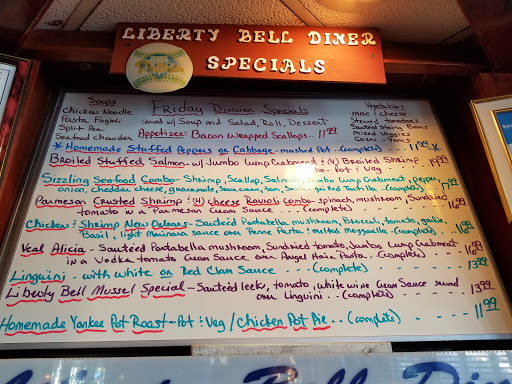 LIBERTY BELL DINER
SPECIALS
Soups
Chicken Noodle
Pasta Fagioli
Split Pea
Seafood Chowder
Friday Dinner Specials
Served w/ Soup and Salad, Roll, Dessert
Appetizer: Bacon Wrapped Scallops... 11.99
Vegetables
mac & cheese
Stewed tomatoes
Sauteed String Beans
mixed Veggies
Corn - Yams
*Homemade Stuffed Peppers or Cabbage - mashed Pot. (Complete) 11.99 *
Broiled Stuffed Salmon - w/ Jumbo Lump Crabmeat & (4) Broiled Shrimp
(Complete) - Pot & Veg 19.99
Sizzling Seafood Combo - Shrimp, Scallop, Salmon, Jumbo Lump Crabmeat, peppers
onion, cheddar cheese, guacamole, Sour cream, grilled Tortilla (Complete) 17.99
Parmesan Crusted Shrimp & (4) Cheese Ravioli Combo - Spinach, mushroom, Sundried
tomato in a Parmesan Cream Sauce - - - (Complete) - - - 16.99
Chicken & Shrimp New Orleans - Sauteed Portabella mushroom, Broccoli, tomato, garlic,
Basil, light Marinara Sauce over Penne Pasta & melted mozzarella - (Complete) - 16.99
Veal Alicia - Sauteed Portabella mushroom, Sundried tomato, Jumbo Lump Crabmeat
in a Vodka tomato Cream Sauce over Angel Hair Pasta - (Complete) - 16.99
Linguini - with White or Red Clam Sauce - - - (Complete) - - - 13.99
Liberty Bell Mussel Special - Sauteed leeks, tomato, white wine Cream Sauce served
over Linguini - - (Complete) - - 13.99
Homemade Yankee Pot Roast - Pot & Veg / Chicken Pot Pie - - (Complete) - - - - 11.99